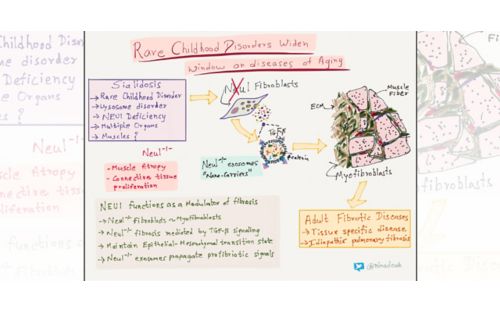 Rare Childhood Disorders Widen
Window on diseases of Aging
Sialidosis
→ Rare Childhood Disorder
→ Lysosome disorder
→ NEU1 Deficiency
→ Multiple Organs
→ Muscles?
Neu1 Fibroblasts
TGFβ
Protein
Neu1-/- exosomes
"Nano-Carriers"
ECM
Muscle
Fiber
Myofibroblasts
Neu1-/-
- Muscle Atropy
- Connective tissue
proliferation
NEU1 functions as a Modulator of fibrosis
→ Neu1-/- Fibroblasts ~ Myofibroblasts
→ Neu1-/- fibrosis mediated by TGF-β signaling
→ Maintain Epithelial-Mesenchymal transition state
→ Neu1-/- exosomes propagate profibrotic signals
Adult Fibrotic Diseases
→ Tissue specific disease
→ Idiopathic pulmonary fibrosis
Childhood Disor
disorder
Deficiency
Organs